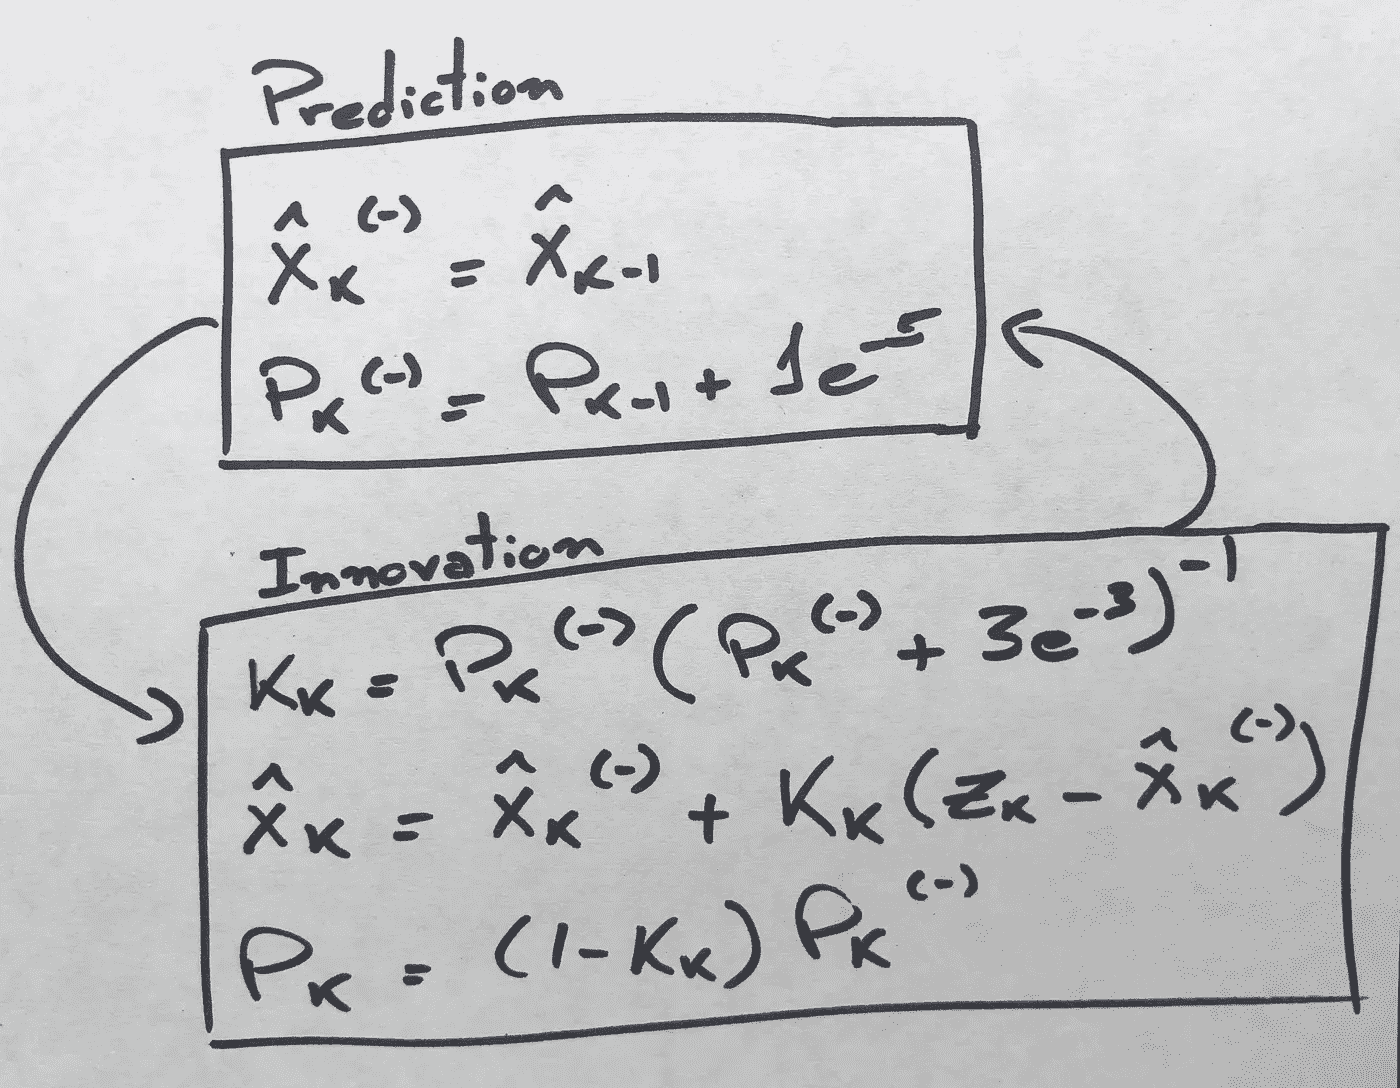 Prediction
x̂ₖ⁽⁻⁾ = x̂ₖ₋₁
Pₖ⁽⁻⁾ = Pₖ₋₁ + 1e⁻⁵
Innovation
Kₖ = Pₖ⁽⁻⁾ (Pₖ⁽⁻⁾ + 3e⁻³)⁻¹
x̂ₖ = x̂ₖ⁽⁻⁾ + Kₖ (zₖ - x̂ₖ⁽⁻⁾)
Pₖ = (1 - Kₖ) Pₖ⁽⁻⁾